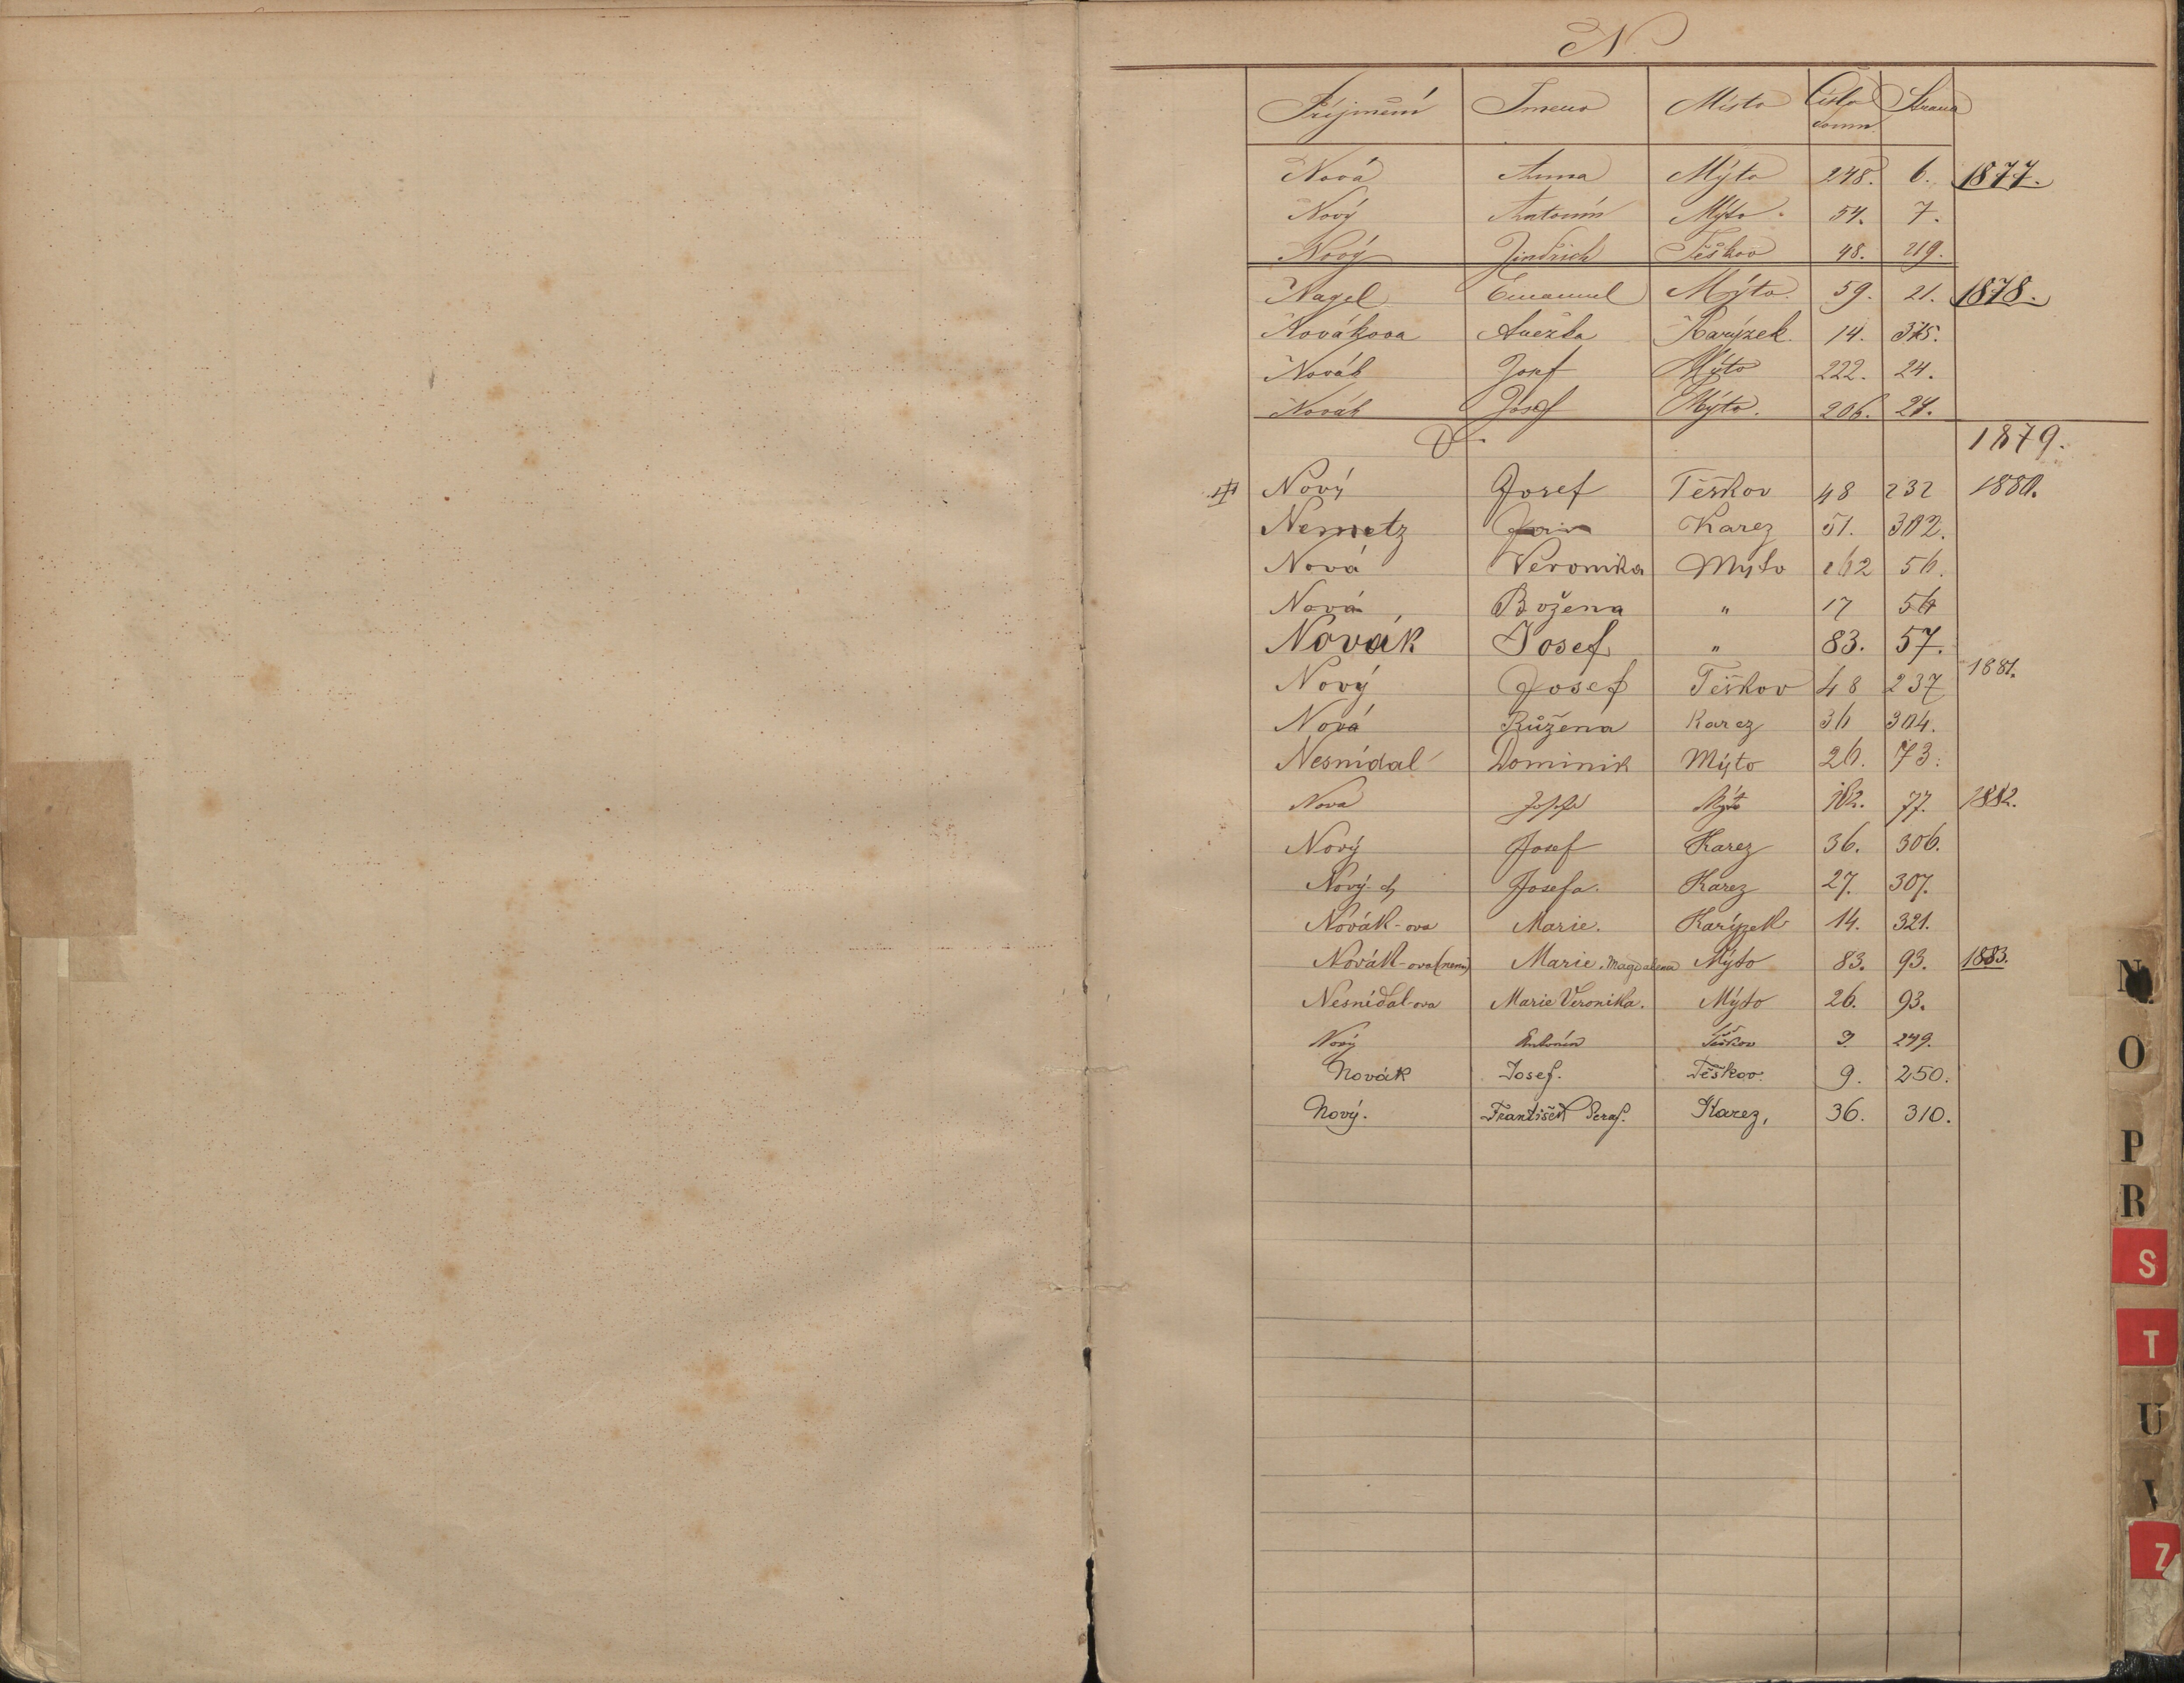 N.
Příjmění Jmeno Místo Číslo domu. Strana
Nová Anna Mýto 248. 6. 1877.
Nový Antonín Mýto. 54. 7.
Nový Jindřich Těškov 48. 219.
Nagel Emanuel Mýto. 59. 21. 1878.
Novákova Anežka Karýzek. 14. 315.
Novák Josef Mýto 222. 24.
Novák Josef Mýto. 206. 24.
1879.
Nový Josef Těškov 48 232 1880.
Nemetz Karez 51. 302.
Nová Veronika Mýto 162 56.
Nová Božena " 17 56
Novák Josef " 83. 57.
1881.
Nový Josef Těškov 48 237
Nová Růžena Karez 36 304.
Nesnídal Dominik Mýto 26. 73.
Nová Mýto 162. 77. 1882.
Nový Josef Karez 36. 306.
Nový-á Josefa. Karez 27. 307.
Novák-ova Marie. Karýzek 14. 321.
Novák-ova (nem) Marie. Magdalena Mýto 83. 93. 1883.
Nesnídal-ova Marie Veronika. Mýto 26. 93.
Nový Antonín Těškov 3 249.
Novák Josef. Těškov. 9. 250.
Nový. František Seraf. Karez, 36. 310.
N
O
P
R
S
T
U
V
Z